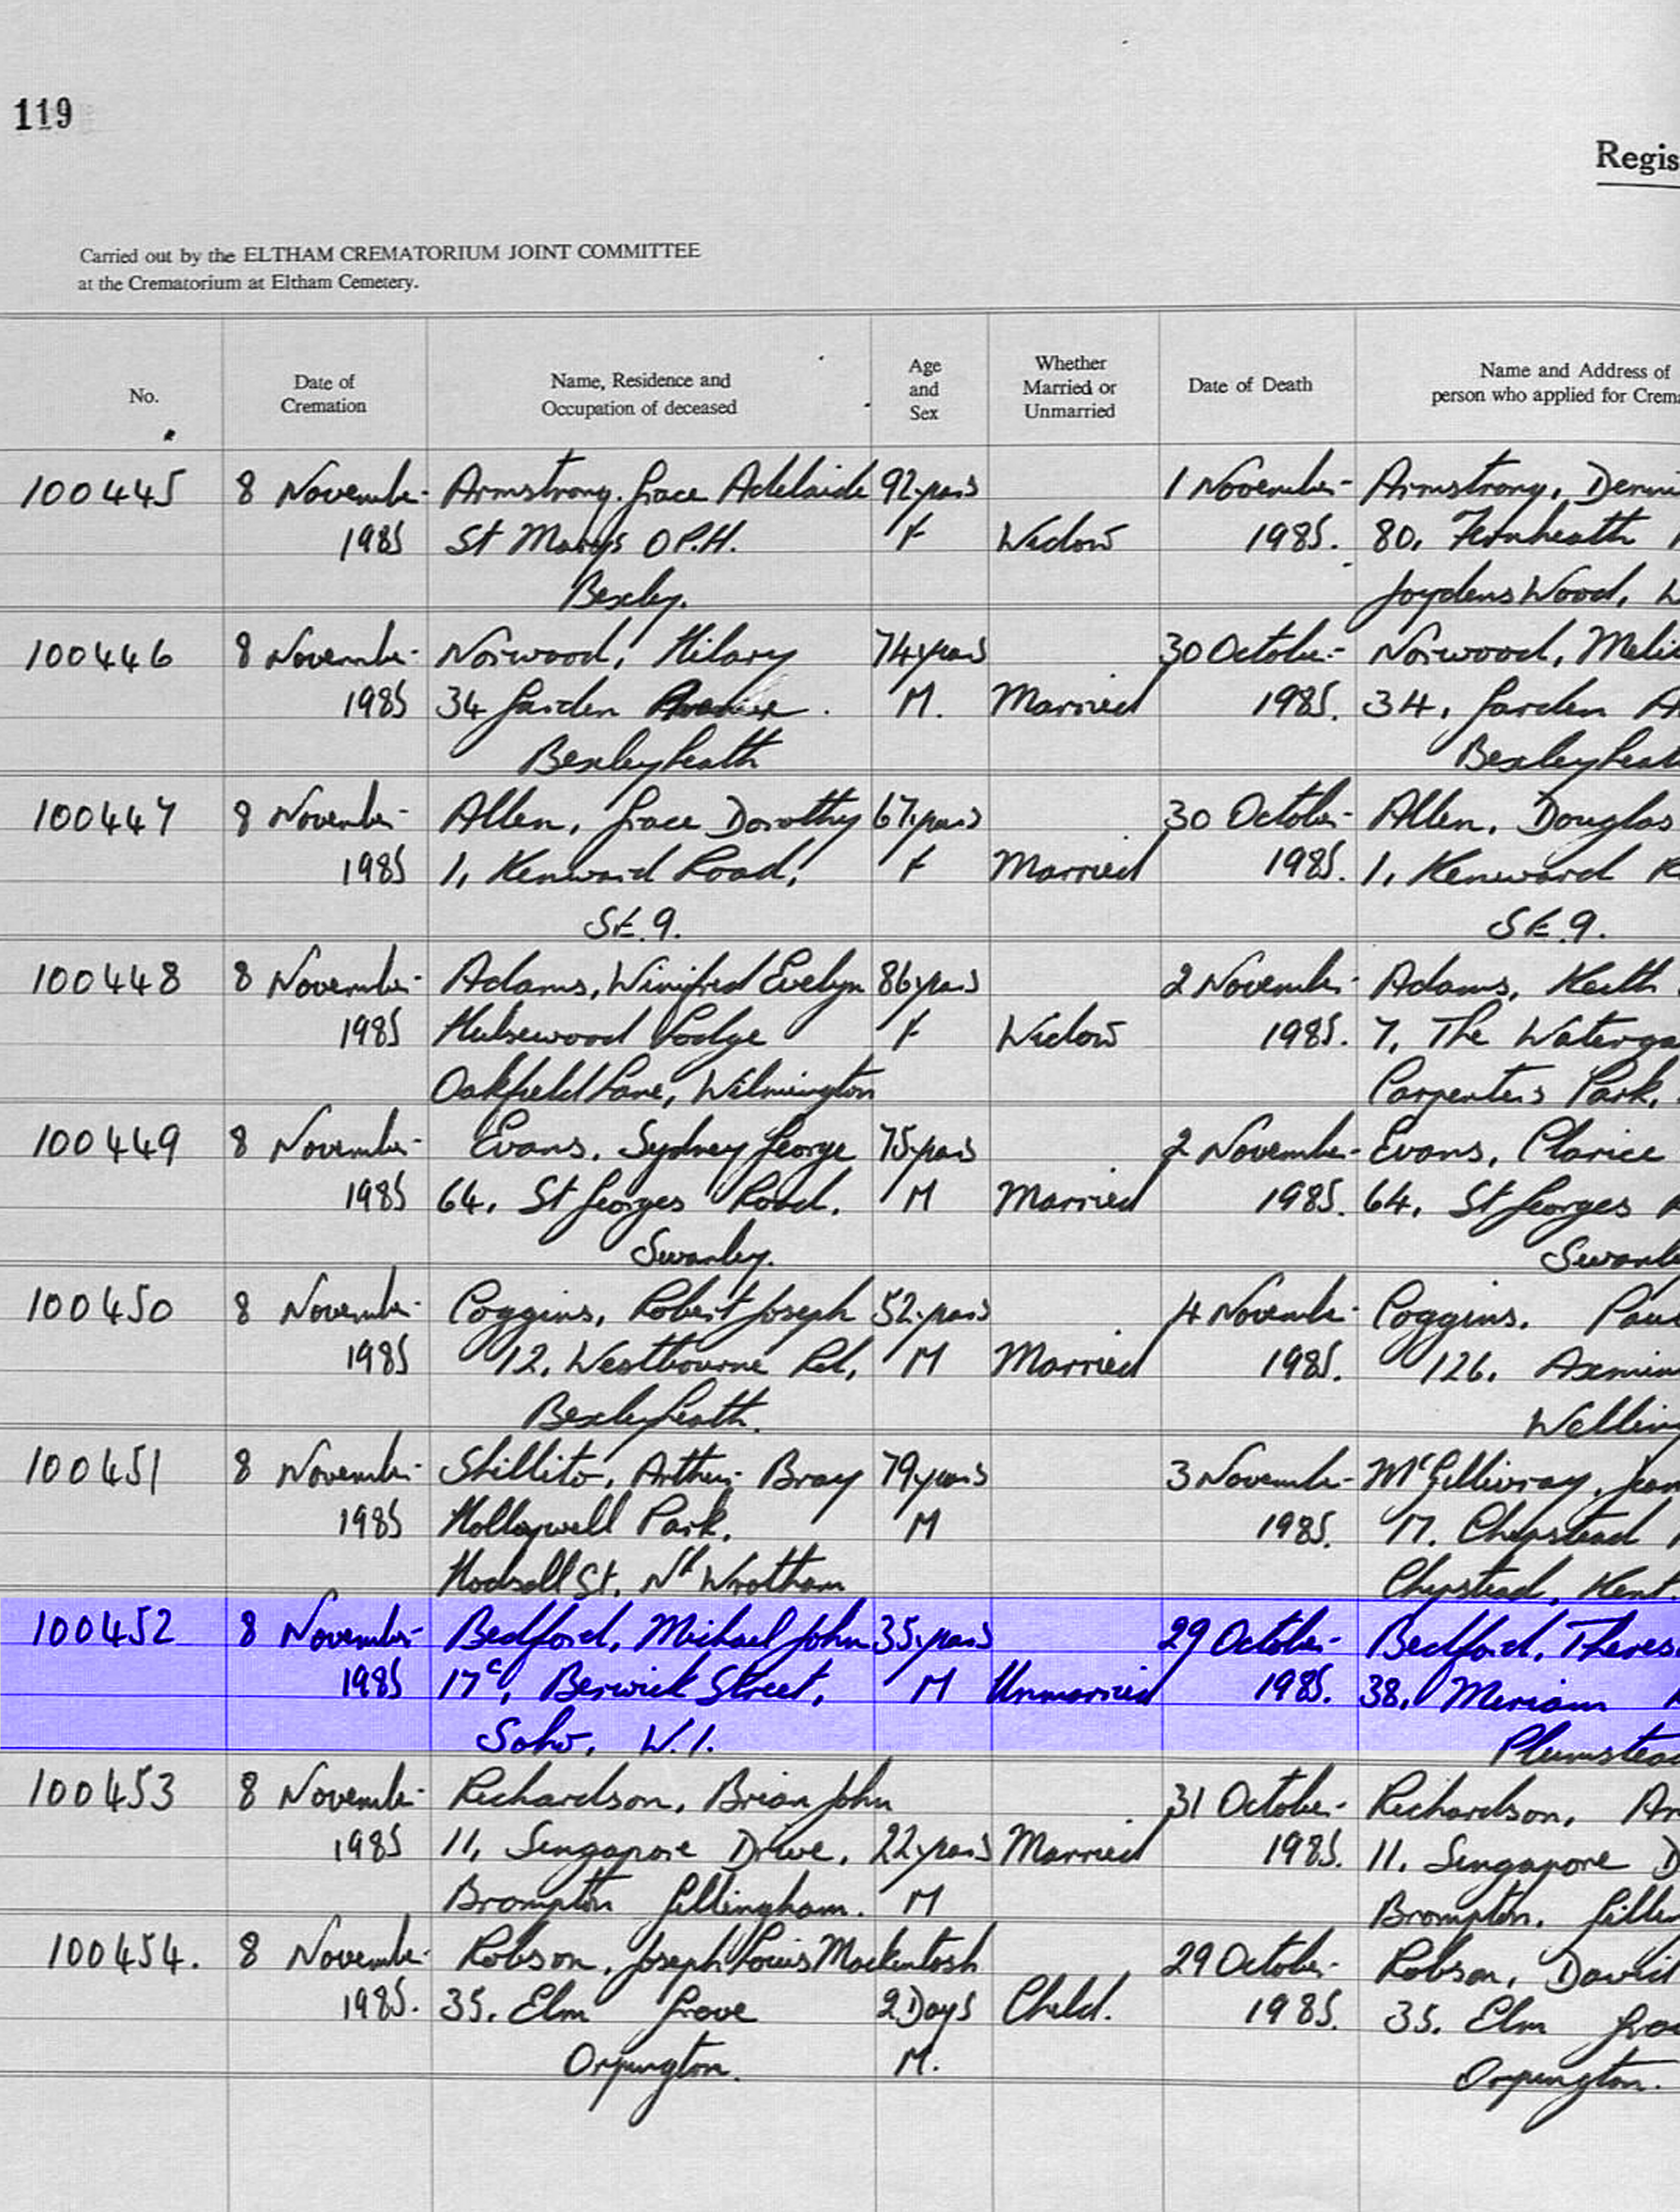 119
Regis
Carried out by the ELTHAM CREMATORIUM JOINT COMMITTEE
at the Crematorium at Eltham Cemetery.
No. Date of Cremation Name, Residence and Occupation of deceased Age and Sex Whether Married or Unmarried Date of Death Name and Address of person who applied for Crema
100445 8 November Armstrong. Grace Adelaide 92 years 1 November Armstrong, Denni
1985 St Marys O.P.H. F Widow 1985. 80, Fernheath
Bexley. Joydens Wood, W
100446 8 November Norwood, Hilary 74 years 30 October Norwood,
1985 34 Garden Avenue. M. Married 1985. 34, Garden A
Bexleyheath Bexleyheat
100447 8 November Allen, Grace Dorothy 67 years 30 October Allen, Douglas
1985 1, Kenward Road, F Married 1985. 1, Kenward R
SE.9. SE.9.
100448 8 November Adams, Winifred Evelyn 86 years 2 November Adams, Keith
1985 Hulsewood Lodge F Widow 1985. 7, The Waterga
Oakfield Lane, Wilmington Carpenters Park,
100449 8 November Evans, Sydney George 75 years 2 November Evans, Clarice
1985 64, St Georges Road. M Married 1985. 64, St Georges
Swanley. Swanl
100450 8 November Coggins, Robert Joseph 52 years 4 November Coggins. Pau
1985 12, Westbourne Rd, M Married 1985. 126, Axmin
Bexleyheath. Welling
100451 8 November Shillito, Arthur Bray 79 years 3 November McGillivray, Jean
1985 Hollywell Park, M 1985. 17, Chipstead
Hodsoll St, Nr Wrotham Chipstead, Kent.
100452 8 November Bedford, Michael John 35 years 29 October Bedford, Theres
1985 17c, Berwick Street, M Unmarried 1985. 38, Meriam
Soho, W.1. Plumstea
100453 8 November Richardson, Brian John 31 October Richardson, An
1985 11, Singapore Drive, 22 years Married 1985. 11, Singapore D
Brompton Gillingham. M Brompton, Gilli
100454. 8 November Robson, Joseph Louis Mackintosh 29 October Robson, David
1985. 35, Elm Grove 2 Days Child. 1985. 35, Elm Gro
Orpington. M. Orpington.